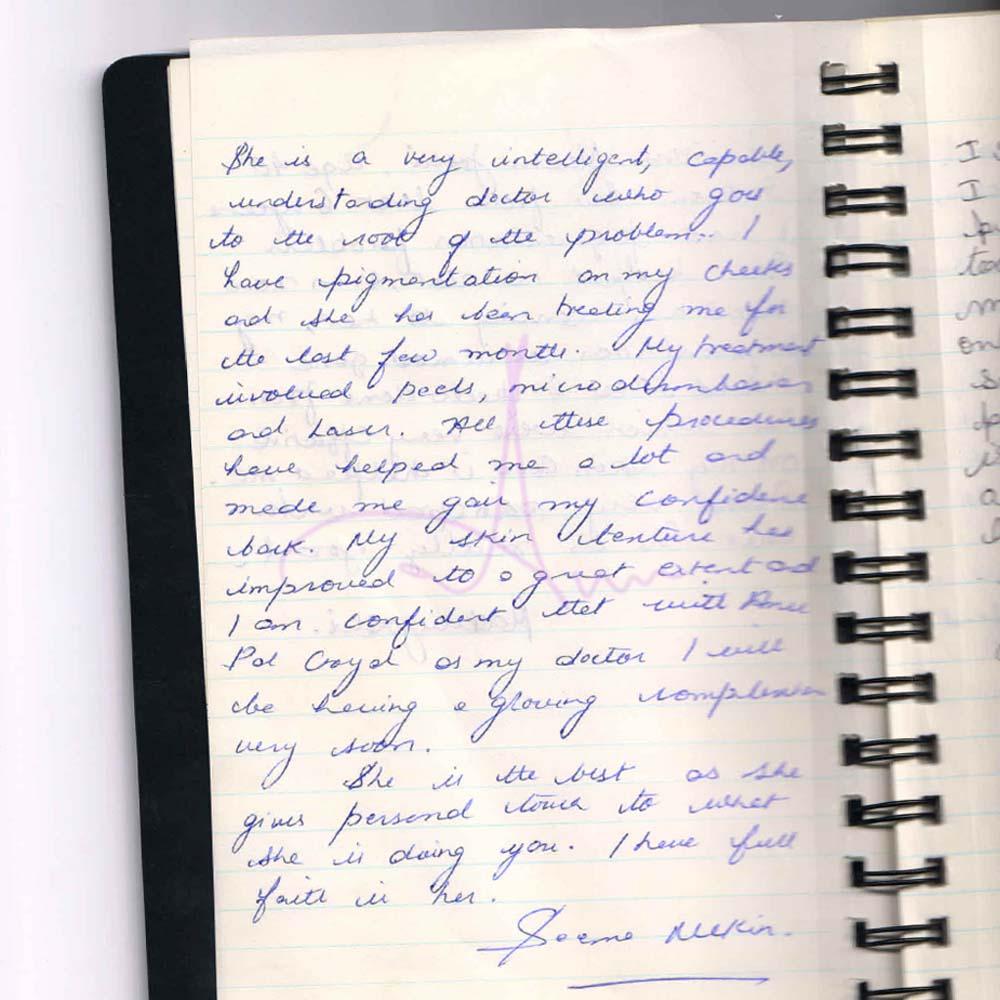 She is a very intelligent, capable,
understanding doctor who goes
to the root of the problem. I
have pigmentation on my cheeks
and she has been treating me for
the last few months. My treatment
involved peels, microdermabrasion
and Laser. All these procedures
have helped me a lot and
made me gain my confidence
back. My skin texture has
improved to a great extent and
I am confident that with
Pal Goyal as my doctor I will
be having a glowing complexion
very soon.
She is the best as she
gives personal touch to what
she is doing you. I have full
faith in her.
Seema
I
I